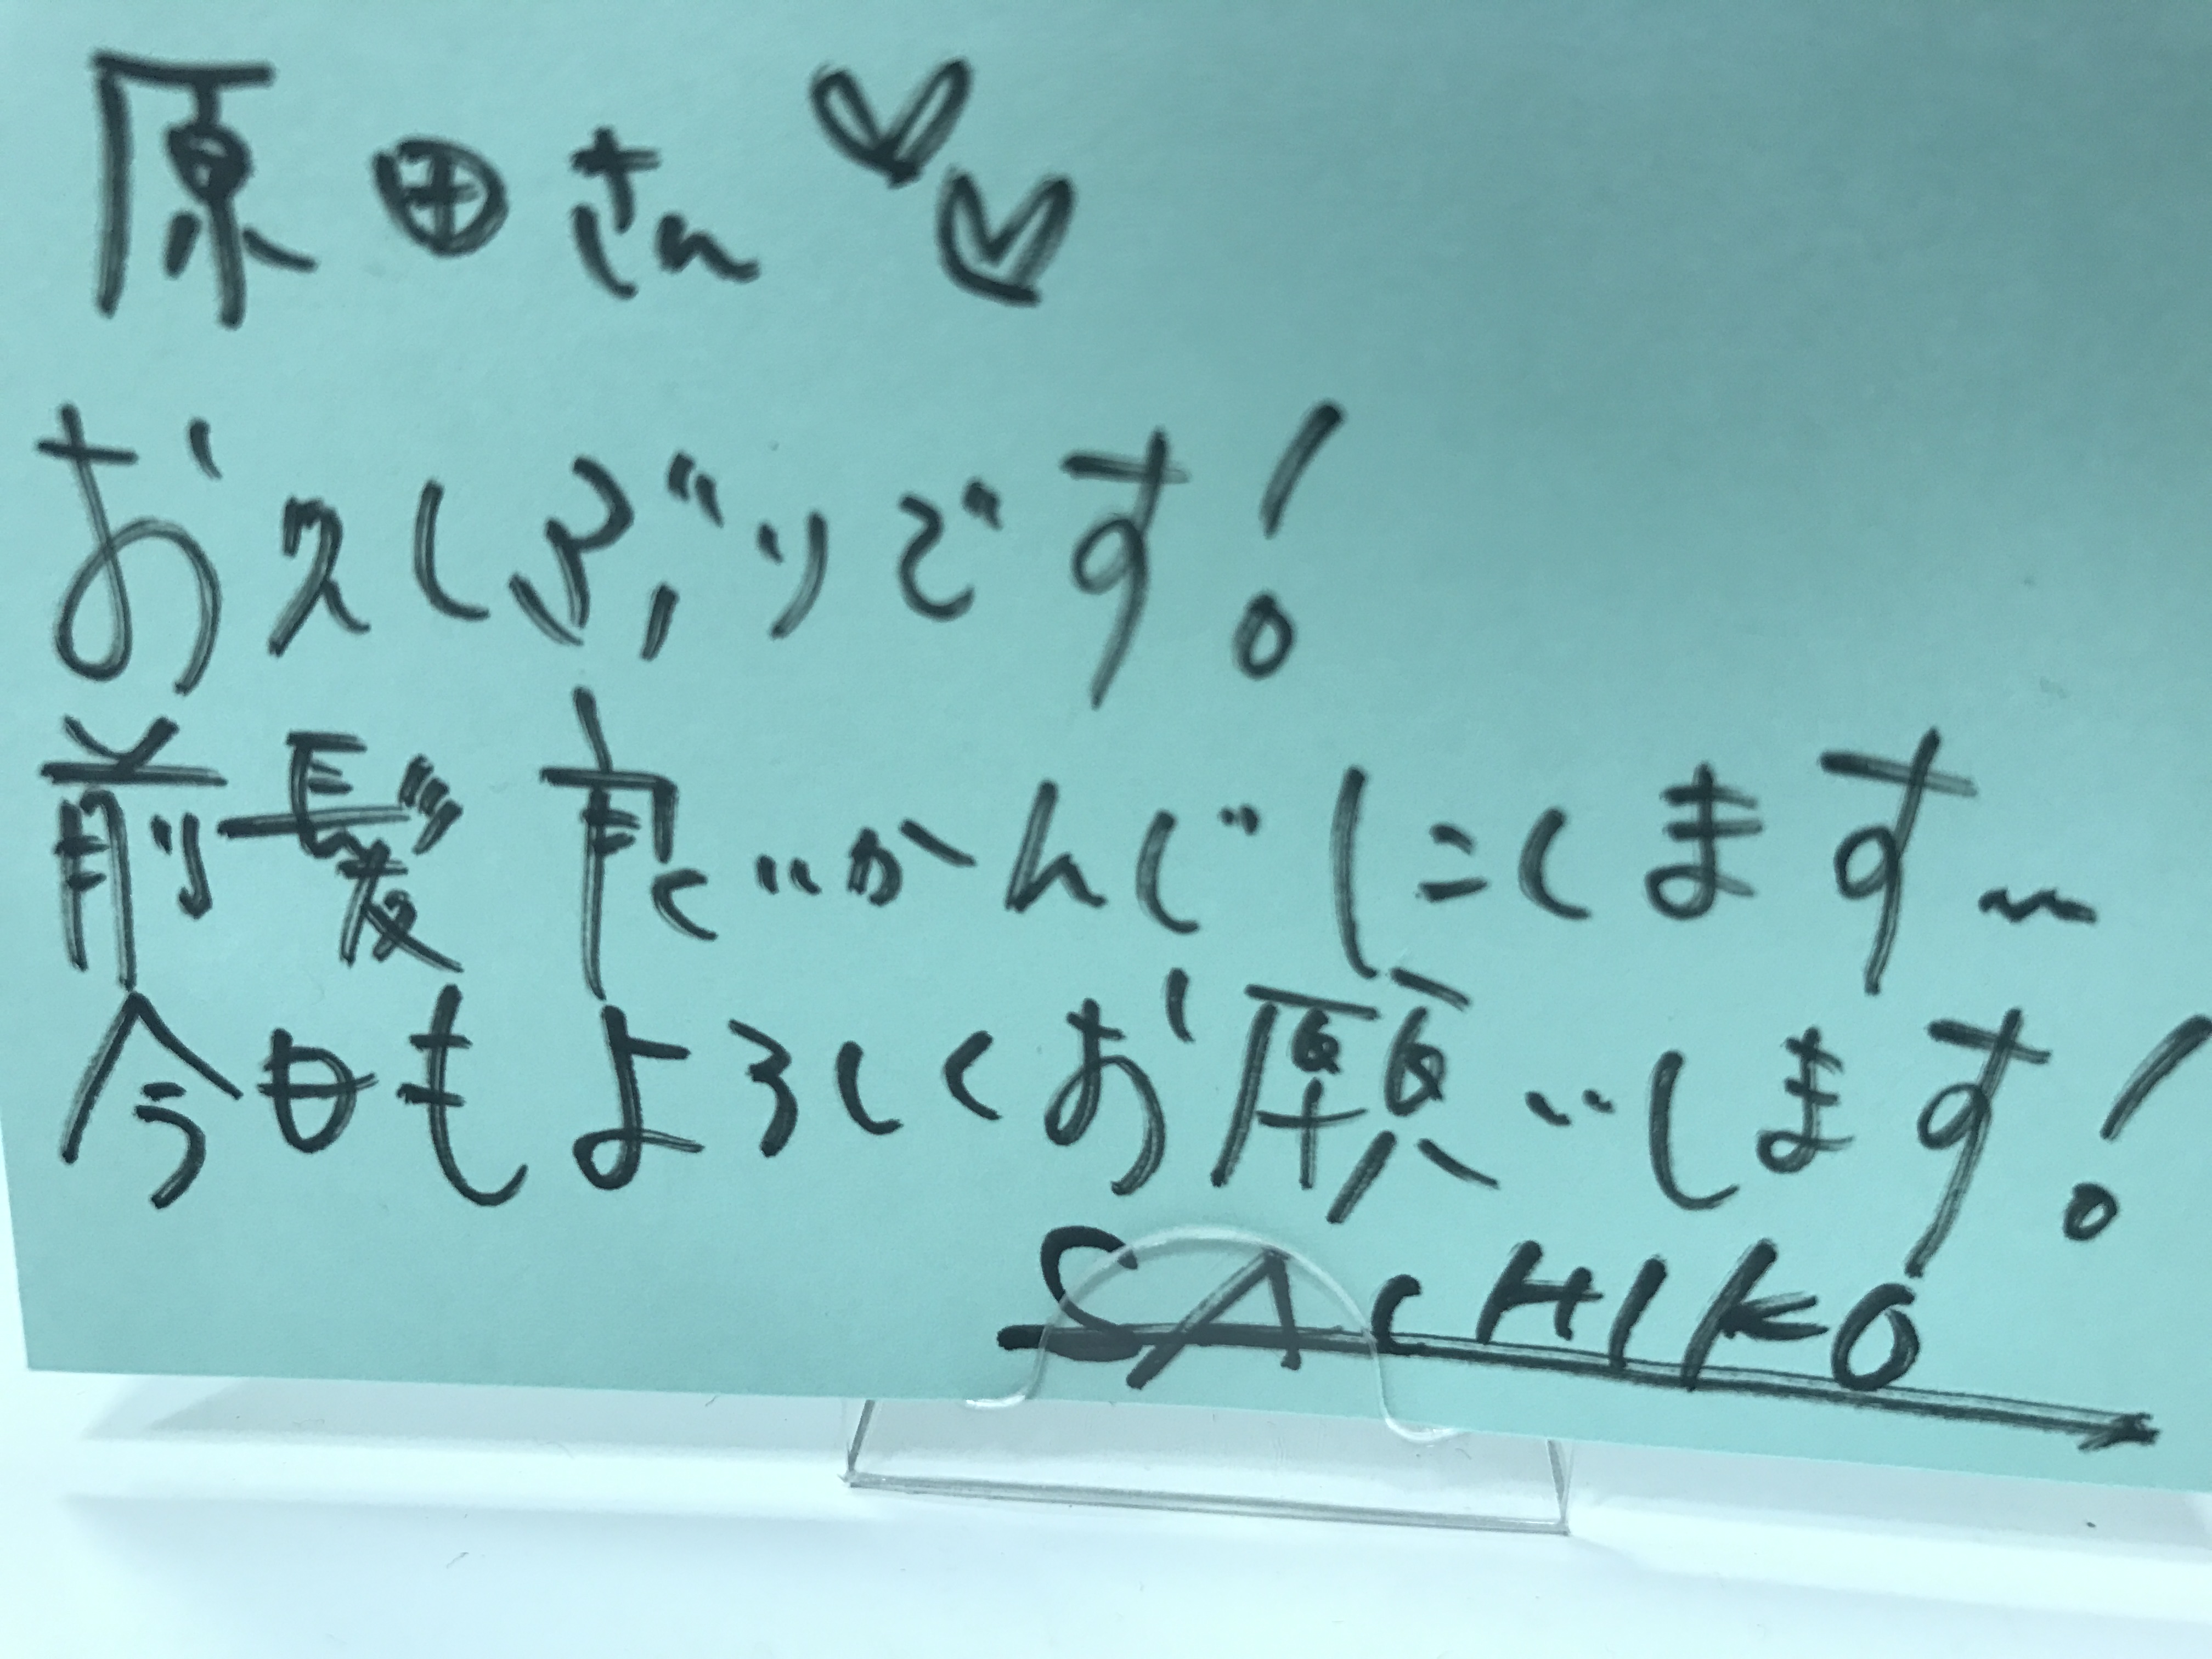 原田さん♡♡
お久しぶりです!
前髪良いかんじにします〜
今日もよろしくお願いします!
SACHIKO